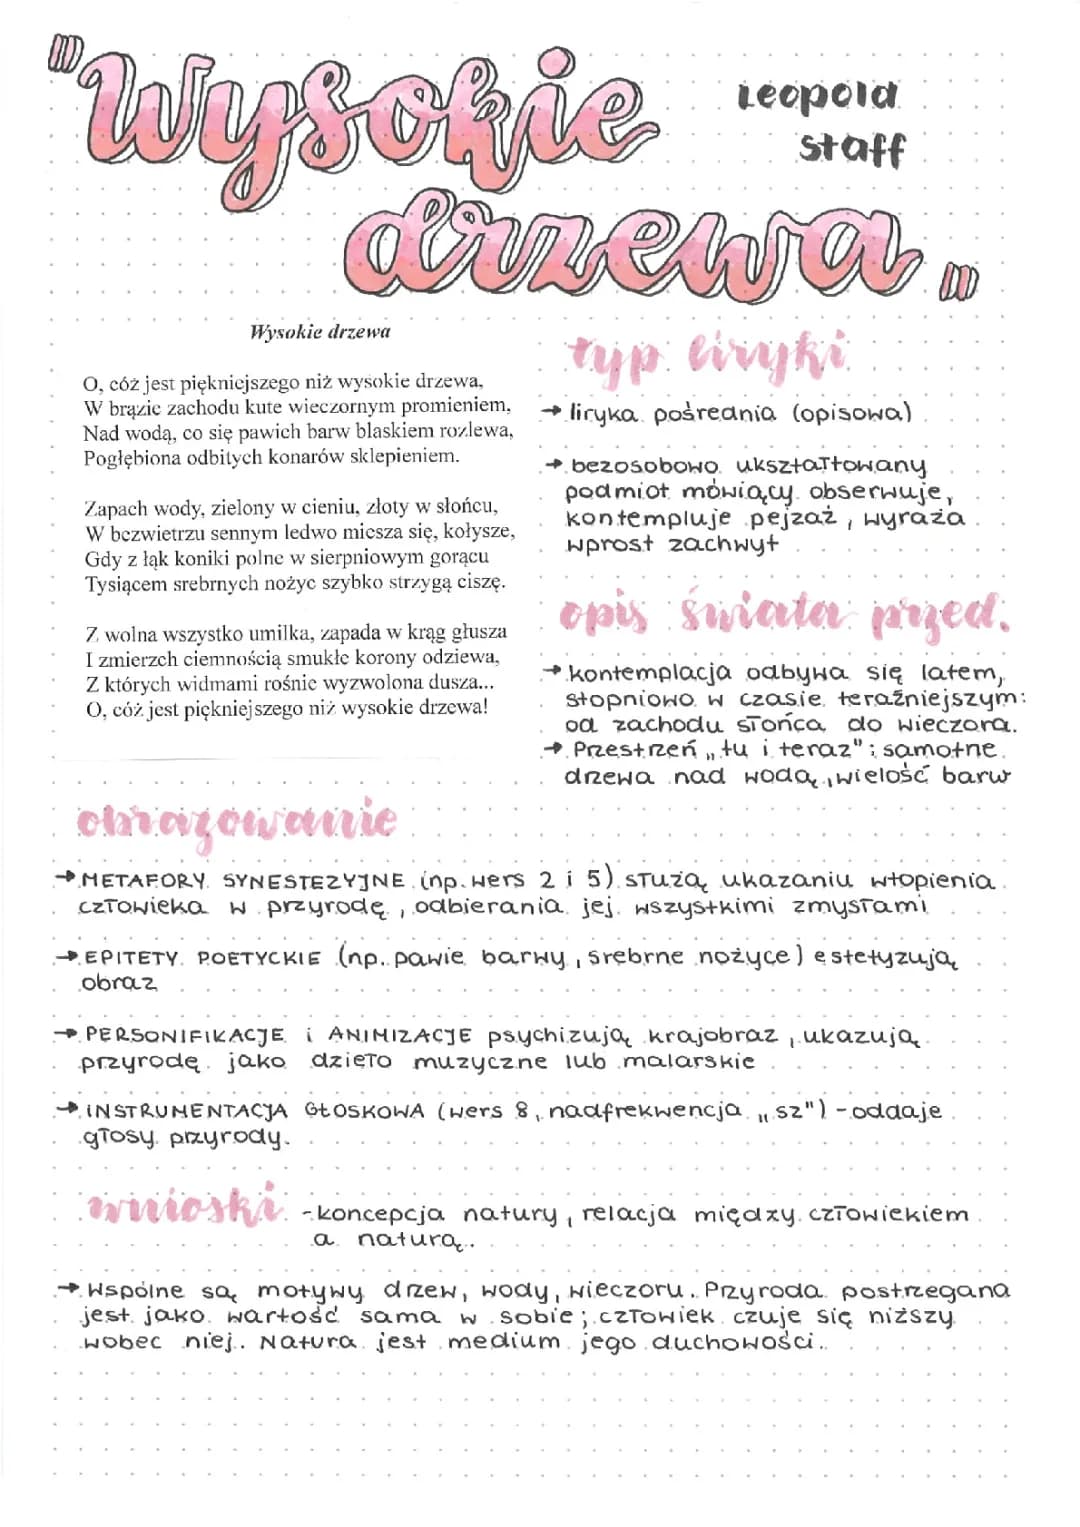 "Wysokie
drzewa"
Leopold
Staff
Wysokie drzewa
O, cóż jest piękniejszego niż wysokie drzewa,
W brązie zachodu kute wieczornym promieniem,
Nad wodą, co się pawich barw blaskiem rozlewa,
Pogłębiona odbitych konarów sklepieniem.
Zapach wody, zielony w cieniu, złoty w słońcu,
W bezwietrzu sennym ledwo miesza się, kołysze,
Gdy z łąk koniki polne w sierpniowym gorącu
Tysiącem srebrnych nożyc szybko strzygą ciszę.
Z wolna wszystko umilka, zapada w krąg głusza
I zmierzch ciemnością smukłe korony odziewa,
Z których widmami rośnie wyzwolona dusza...
O, cóż jest piękniejszego niż wysokie drzewa!
typ liryki
→ liryka pośrednia (opisowa)
→ bezosobowo ukształtowany
podmiot mówiący obserwuje,
kontempluje pejzaż, wyraża
wprost zachwyt
opis świata przed.
→ kontemplacja odbywa się latem,
stopniowo w czasie teraźniejszym:
od zachodu słońca do wieczora.
→ Przestrzeń „tu i teraz": samotne
drzewa nad wodą, wielość barw
obrazowanie
→ METAFORY SYNESTEZYJNE (np. wers 2 i 5) służą ukazaniu wtopienia
człowieka w przyrodę, odbierania jej wszystkimi zmysłami
→ EPITETY POETYCKIE (np. pawie barwy, srebrne nożyce) estetyzują
obraz
→ PERSONIFIKACJE i ANIMIZACJE psychizują krajobraz, ukazują
przyrodę jako dzieło muzyczne lub malarskie
→ INSTRUMENTACJA GŁOSKOWA (wers 8, nadfrekwencja „sz") - oddaje
głosy przyrody.
wnioski - koncepcja natury, relacja między człowiekiem
a naturą.
→ Wspólne są motywy drzew, wody, wieczoru. Przyroda postrzegana
jest jako wartość sama w sobie; człowiek czuje się niższy
wobec niej. Natura jest medium jego duchowości.